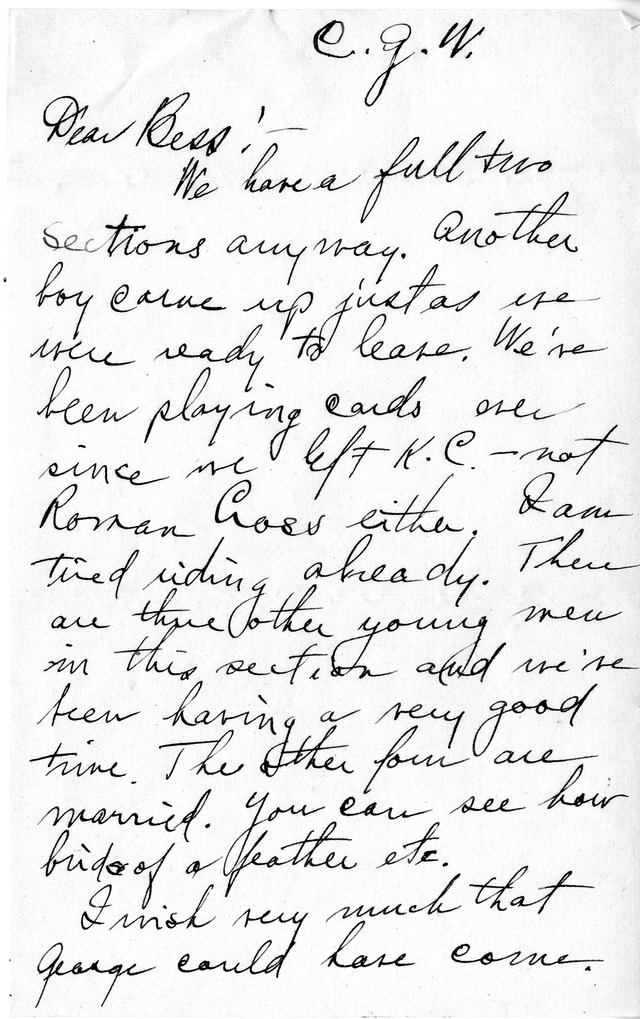 C. G. W.
Dear Bess! -
We have a full two
sections anyway. Another
boy came up just as we
were ready to leave. We've
been playing cards ever
since we left K.C. - not
Roman Cross either. I am
tired riding already. There
are three other young men
in this section and we've
been having a very good
time. The other four are
married. You can see how
birds of a feather etc.
I wish very much that
George could have come.